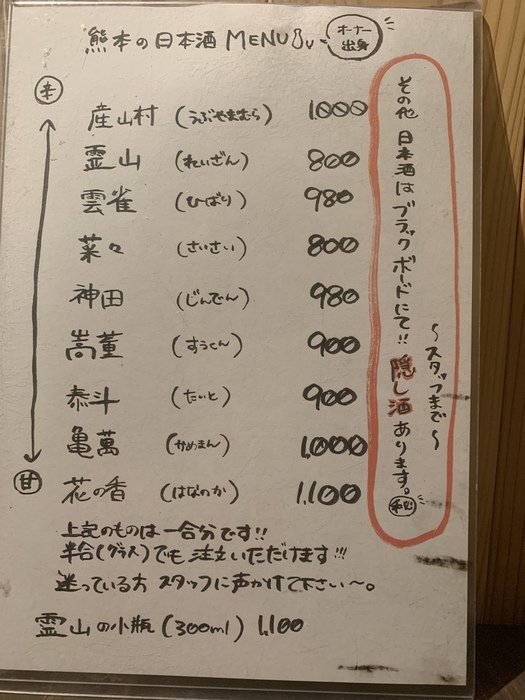 熊本の日本酒 MENU オーナー出身
辛
産山村 (うぶやまむら) 1.000
霊山 (れいざん) 800
雲雀 (ひばり) 980
菜々 (さいさい) 800
神田 (じんでん) 980
嵩董 (すうくん) 900
泰斗 (たいと) 900
亀萬 (かめまん) 1.000
甘
花の香 (はなのか) 1.100
上記のものは一合分です!!
半合(グラス)でも注文いただけます!!!
迷っている方 スタッフに声かけて下さい〜。
霊山の小瓶 (300ml) 1.100
その他 日本酒はブラックボードにて!! 隠し酒あります。
〜スタッフまで〜